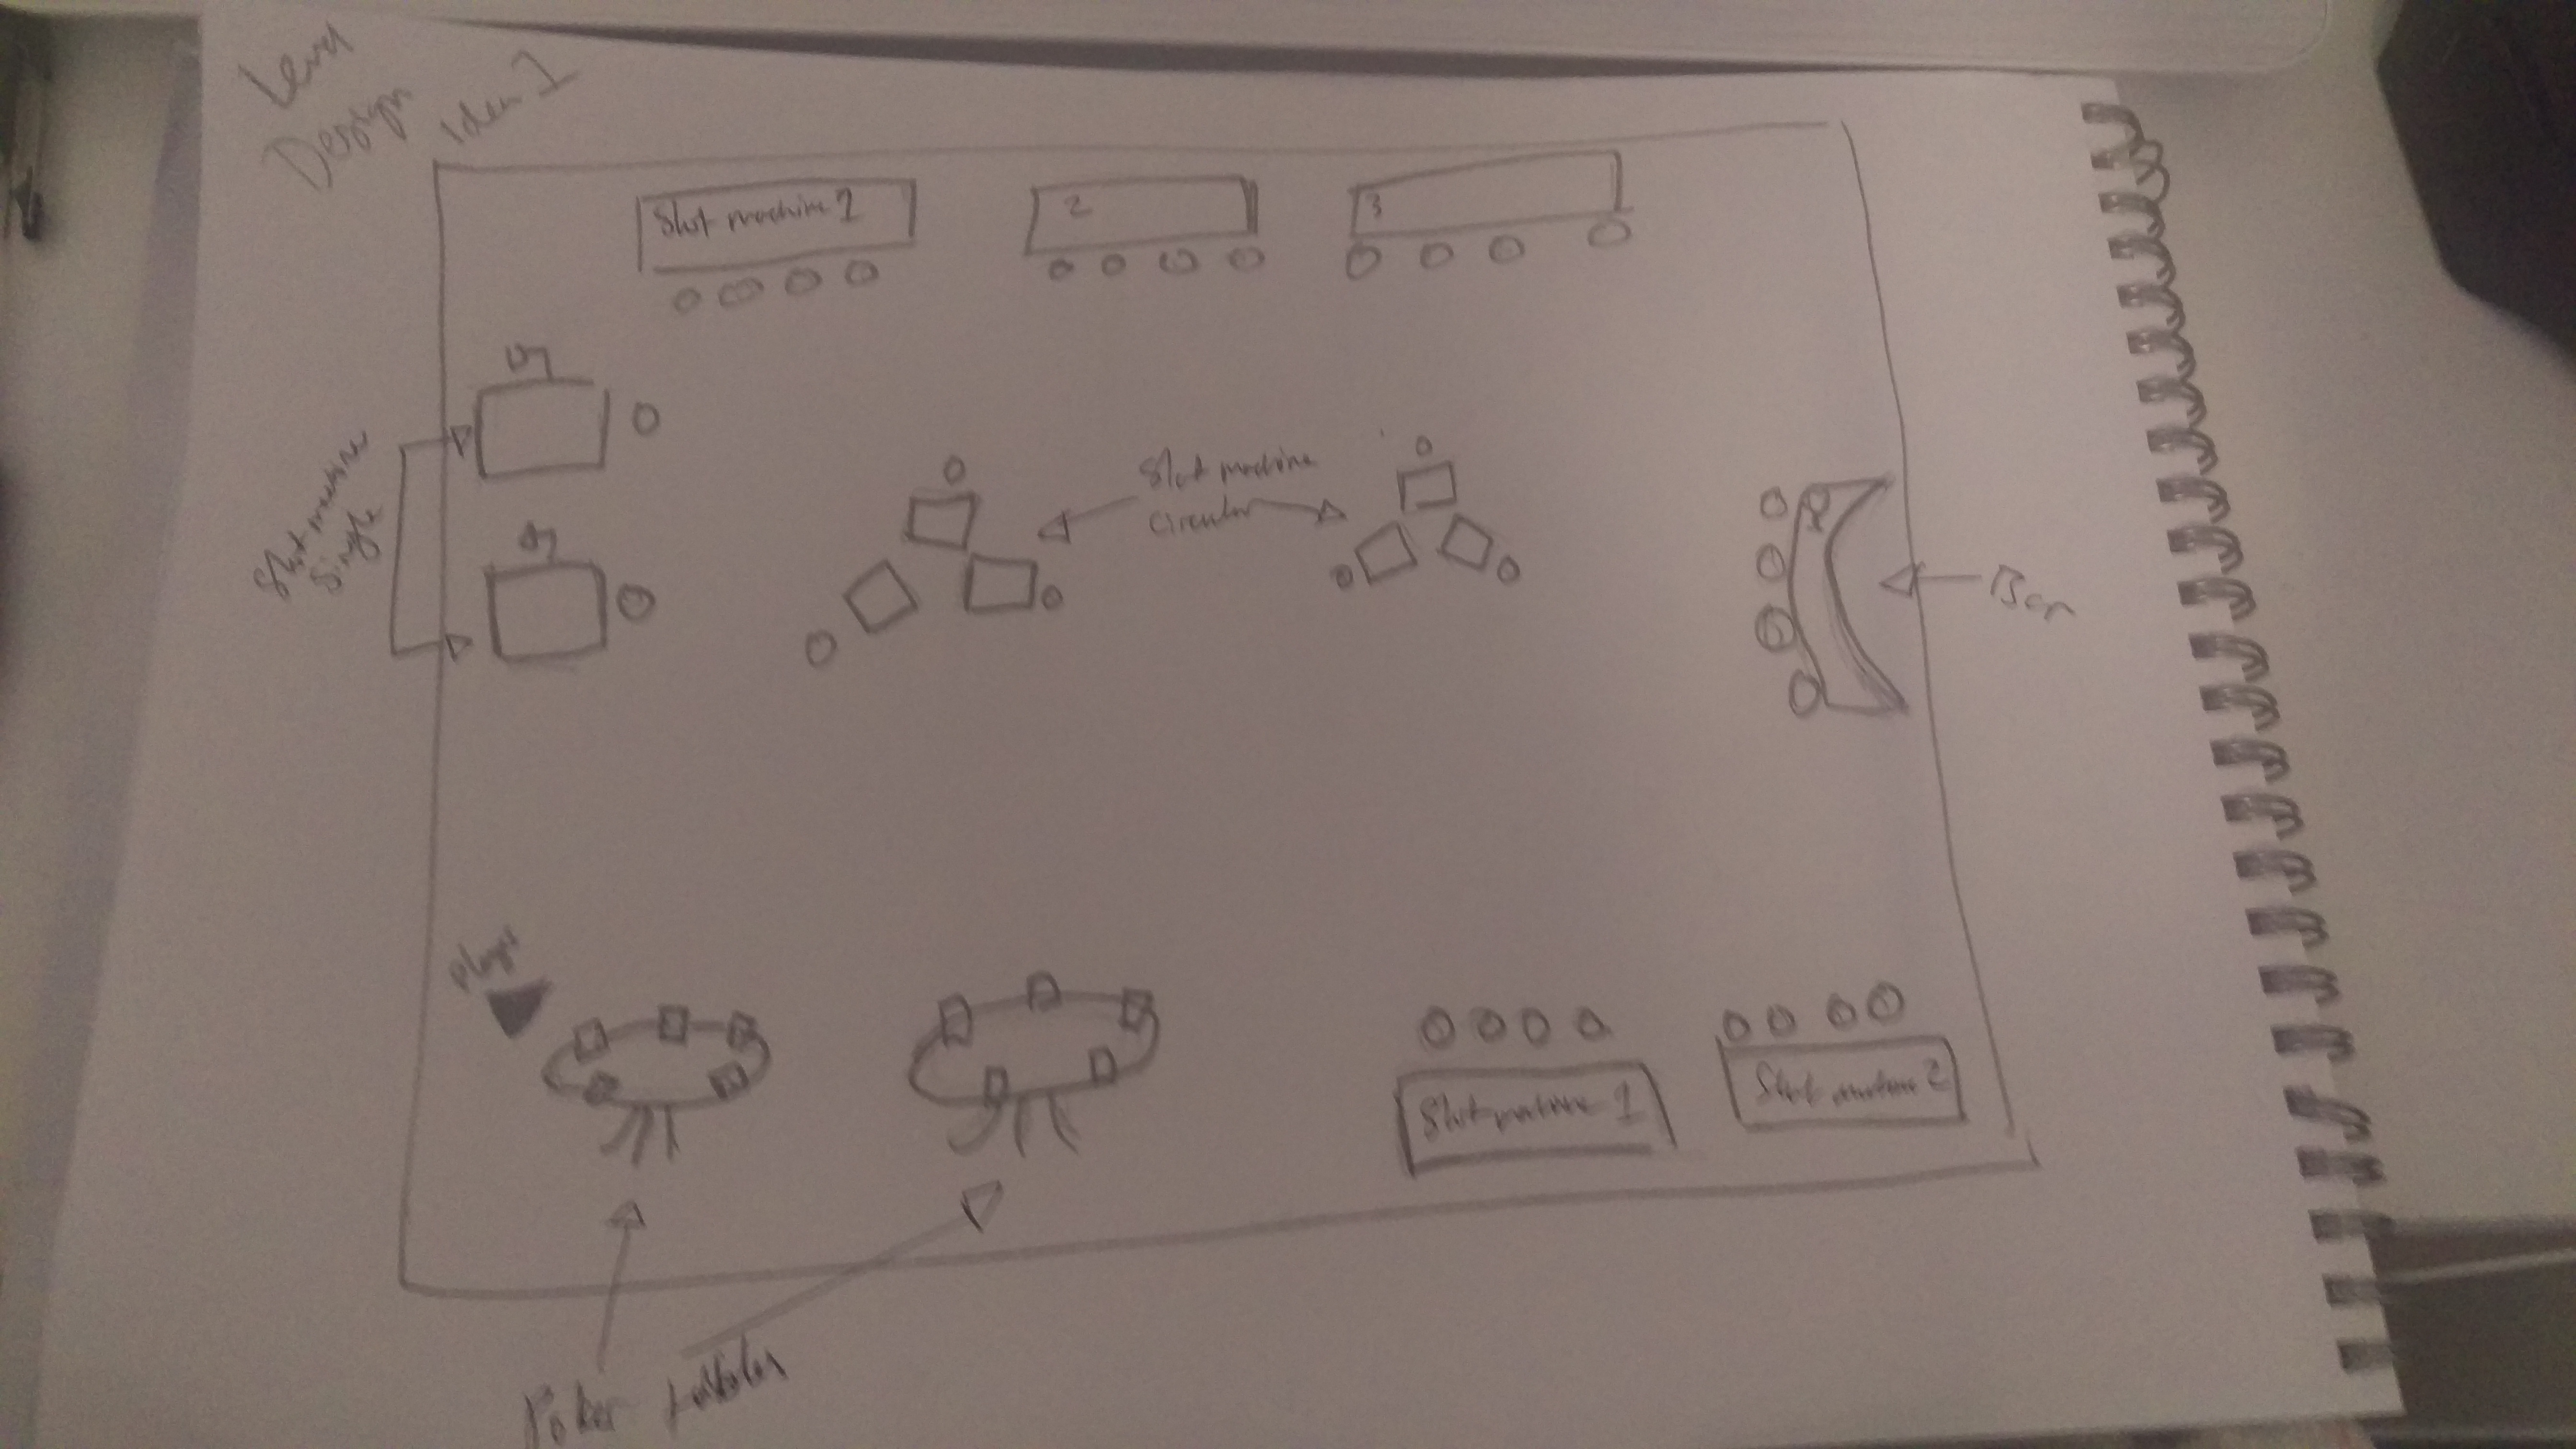 Level
Design
Idea 1
Slot machine 1
2
3
Slot machine
Single
Slot machine
circular
Bar
Player
Slot machine 1
Slot machine 2
Poker tables